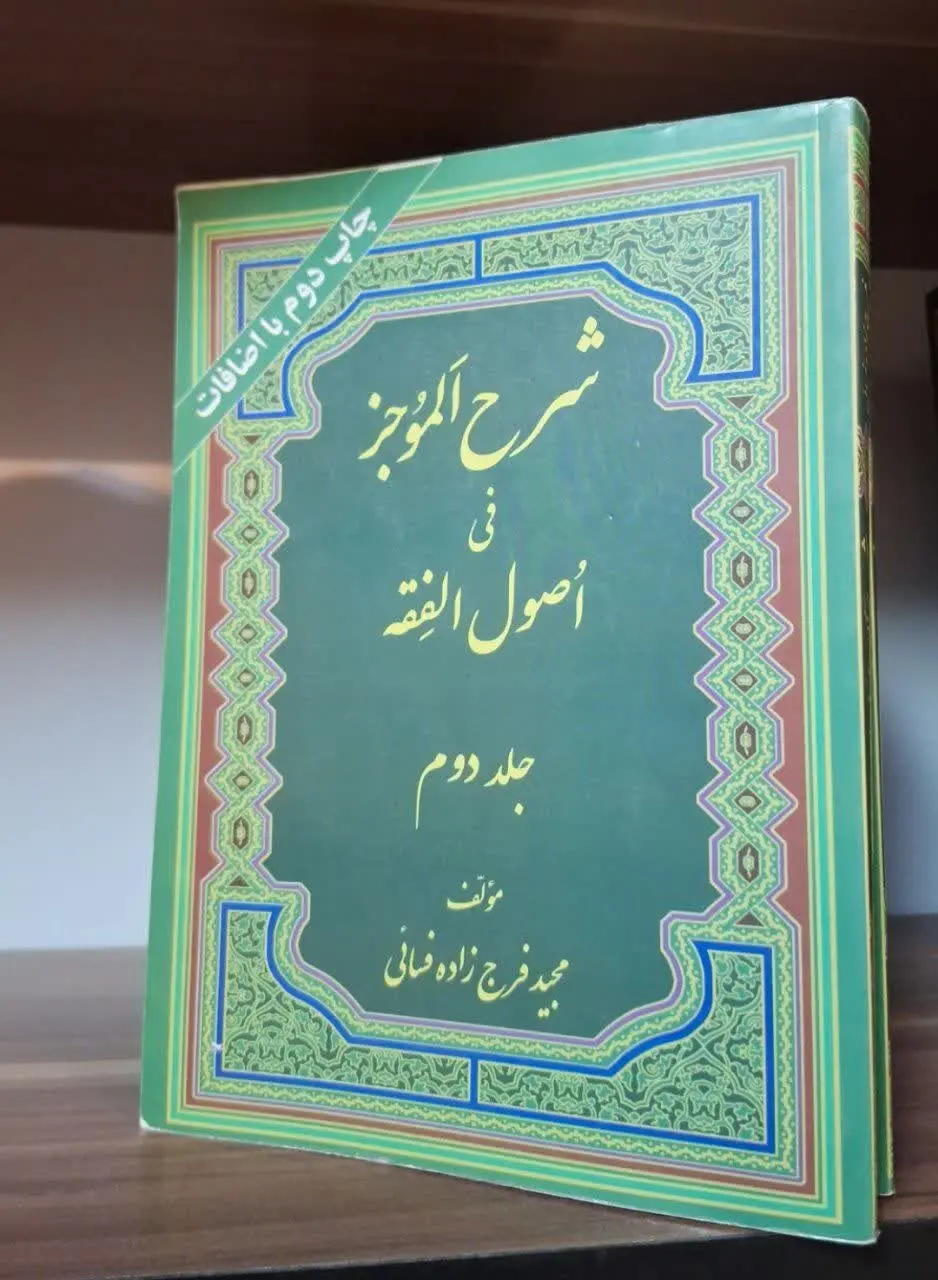 چاپ دوم با اضافات
شرح اَلمُوجز
فی
اُصول الفِقه
جلد دوم
مؤلّف
مجید فرج زاده فسائی